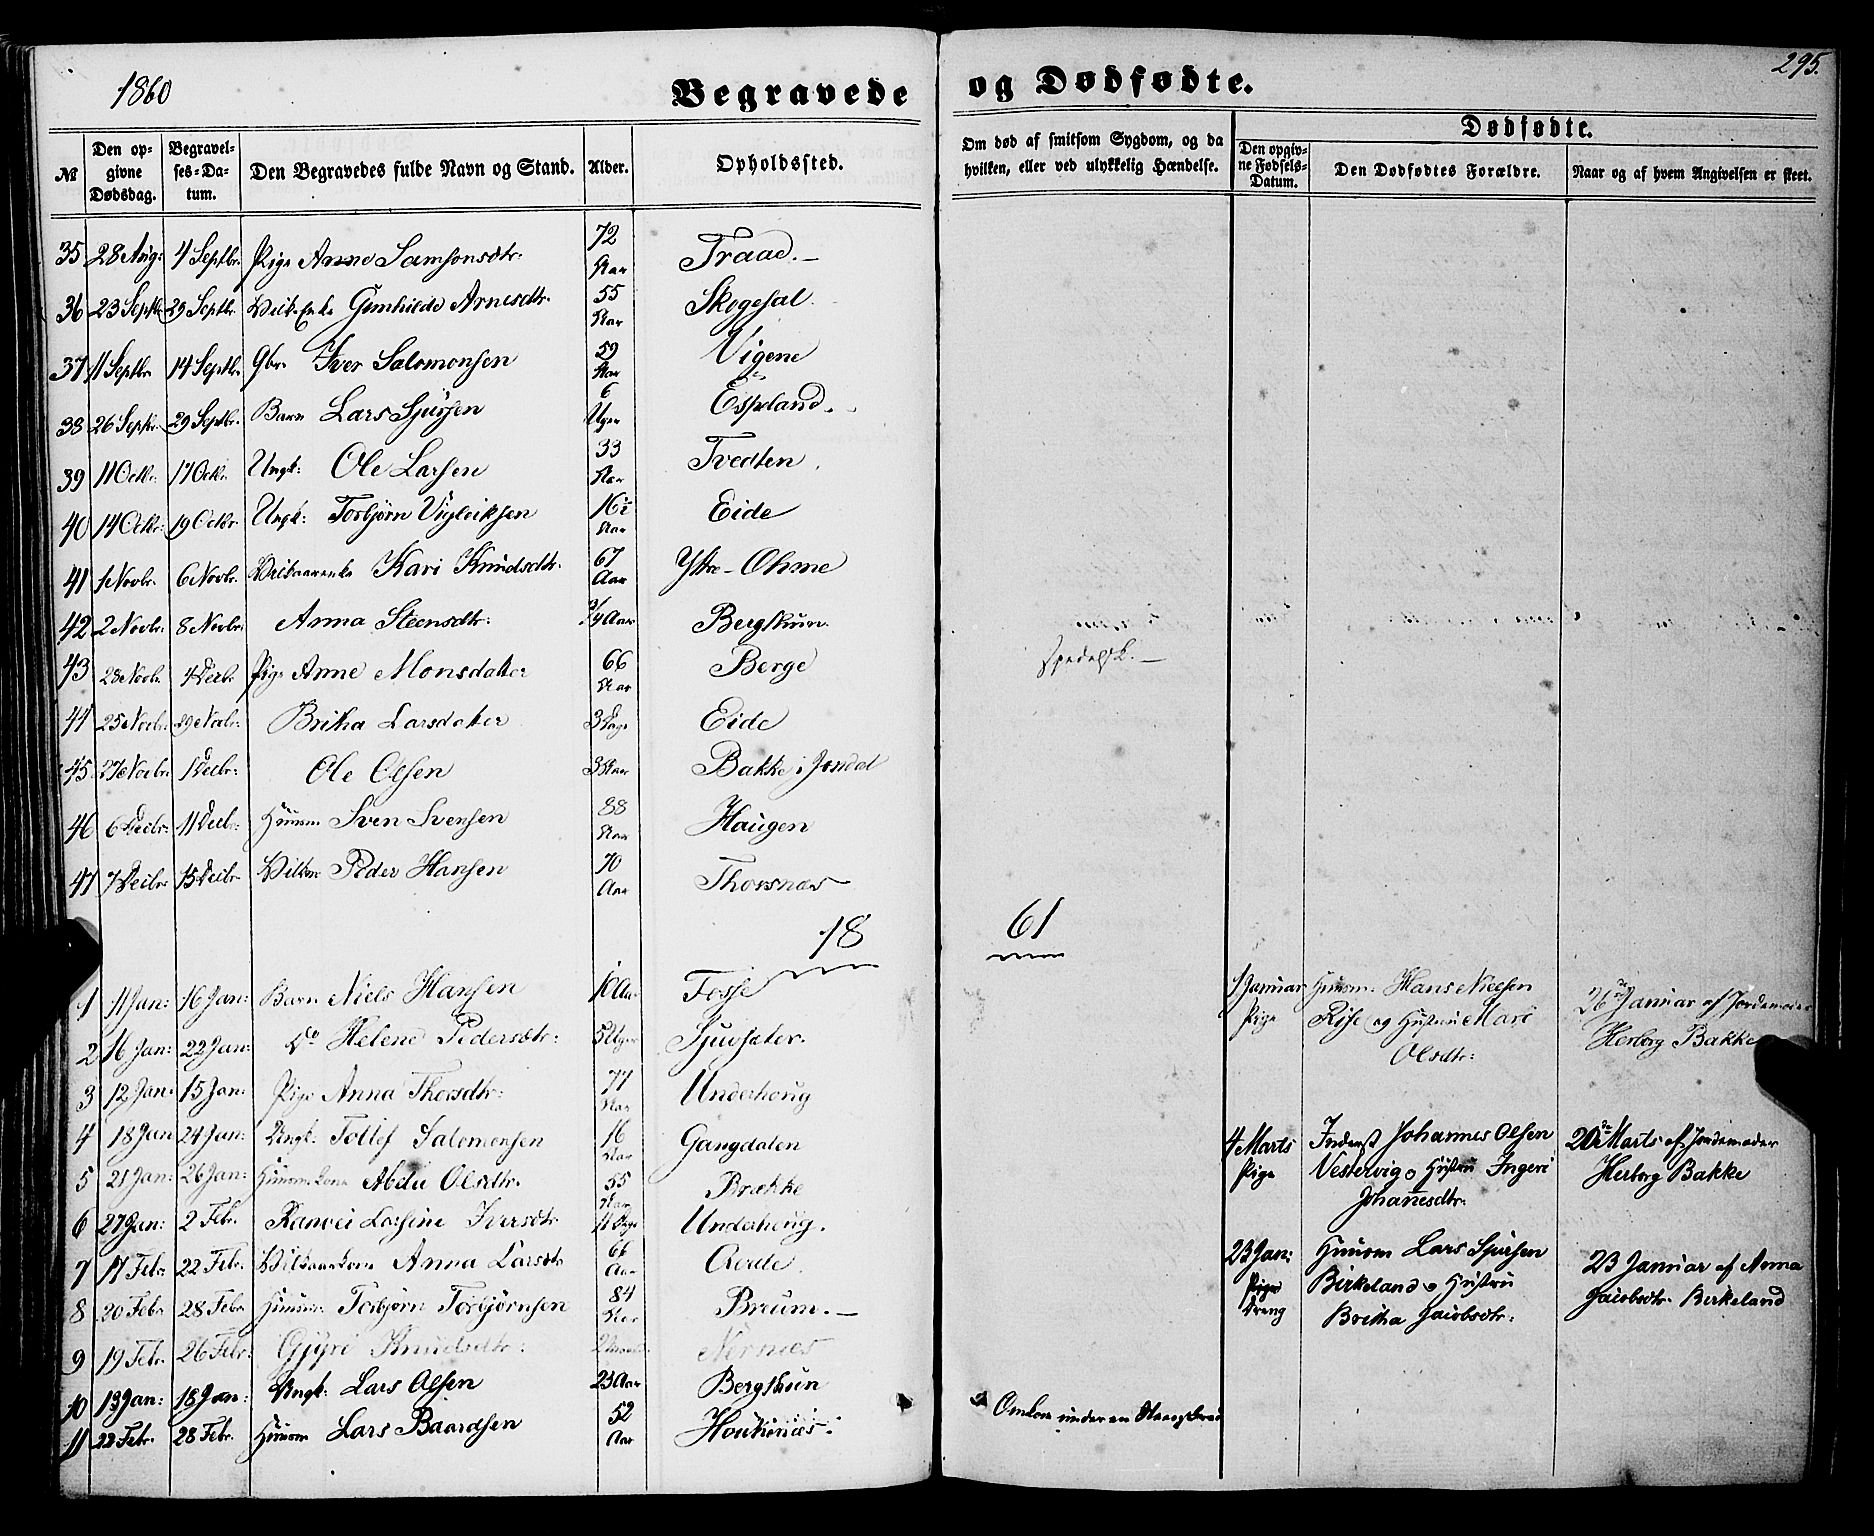 1860
Begravede og Dødfødte.
295.
№
Den opgivne Dødsdag.
Begravelses-Datum.
Den Begravedes fulde Navn og Stand.
Alder.
Opholdssted.
Om død af smitsom Sygdom, og da hvilken, eller ved ulykkelig Hændelse.
Dødfødte.
Den opgivne Fødsels-Datum.
Den Dødfødtes Forældre.
Naar og af hvem Angivelsen er skeet.
35 28 Aug: 4 Septbr. Pige Anne Samsonsdtr. 72 Aar Traad.
36 23 Septbr 29 Septbr. Gunhilde Arnesdtr. 55 Aar Skogesal.
37 11 Septbr 14 Septbr. Gbr. Iver Salomonsen 59 Aar Vigene
38 26 Septbr. 29 Septbr. Barn Lars Sjursen 6 Uger Espeland.
39 11 Octbr. 17 Octbr. Ungk: Ole Larsen 33 Aar Tvedten.
40 14 Octbr. 19 Octbr Ungk: Torbjørn Vigleiksen 16 Aar Eide
41 1 Novbr. 6 Novbr. Kari Knudsdtr. 67 Aar Ytre-Ohme
42 2 Novbr. 8 Novbr. Anna Steensdtr: 3/4 Aar Bergstuen.
43 28 Novbr. 4 Decbr Pige Anne Monsdatter 66 Aar Berge spedalsk.
44 25 Novbr. 29 Novbr: Britha Larsdatter 3 Dage Eide
45 27 Novbr. 1 Decbr: Ole Olsen 3 Aar Bakke i Jondal
46 6 Decbr. 11 Decbr: Huusm Sven Svensen 88 Aar Haugen
47 7 Decbr. 15 Decbr Peder Hansen 70 Aar Thorsnæs
18 61
1 11 Jan: 16 Jan: Barn Niels Hansen 10 Aar Fosse
1 Januar Pige Huusm: Hans Nielsen Rise og Hustru Mari Olsdtr: 26 Januar af Jordemoder Herborg Bakke
2 16 Jan: 22 Jan: Do Helene Pedersdtr: 5 Uger Sjusæter.
3 12 Jan: 15 Jan: Pige Anna Thorsdtr: 77 Aar Underhoug
4 18 Jan 24 Jan: Ungk: Tollef Salomonsen 16 Aar Gangdalen
4 Marts Pige Inderst Johannes Olsen Vestervig og Hustru Ingeri Johannesdtr. 20de Marts af Jordemoder Herborg Bakke
5 21 Jan: 26 Jan: Huusm kone Abelu Olsdtr. 55 Aar Brække
6 27 Jan: 2 Febr. Ranvei Larsine Iversdtr 11 Dage Underhoug.
7 17 Febr. 22 Febr. Anna Larsdtr 66 Aar
23 Jan: Pige Dreng Huusm Lars Sjursen Birkeland og Hustru Britha Jacobsdtr: 23 Januar af Anna Jacobsdtr. Birkeland
8 20 Febr 28 Febr Huusm: Torbjørn Torbjørnsen 84 Aar Breum.
9 19 Febr. 26 Febr: Gjyri Knudsdtr: Nernes
10 13 Jan: 18 Jan: Ungk: Lars Olsen 23 Aar Bergstuen
11 22 Febr. 28 Febr. Huusm Lars Baardsen 52 Aar
Omkom under en